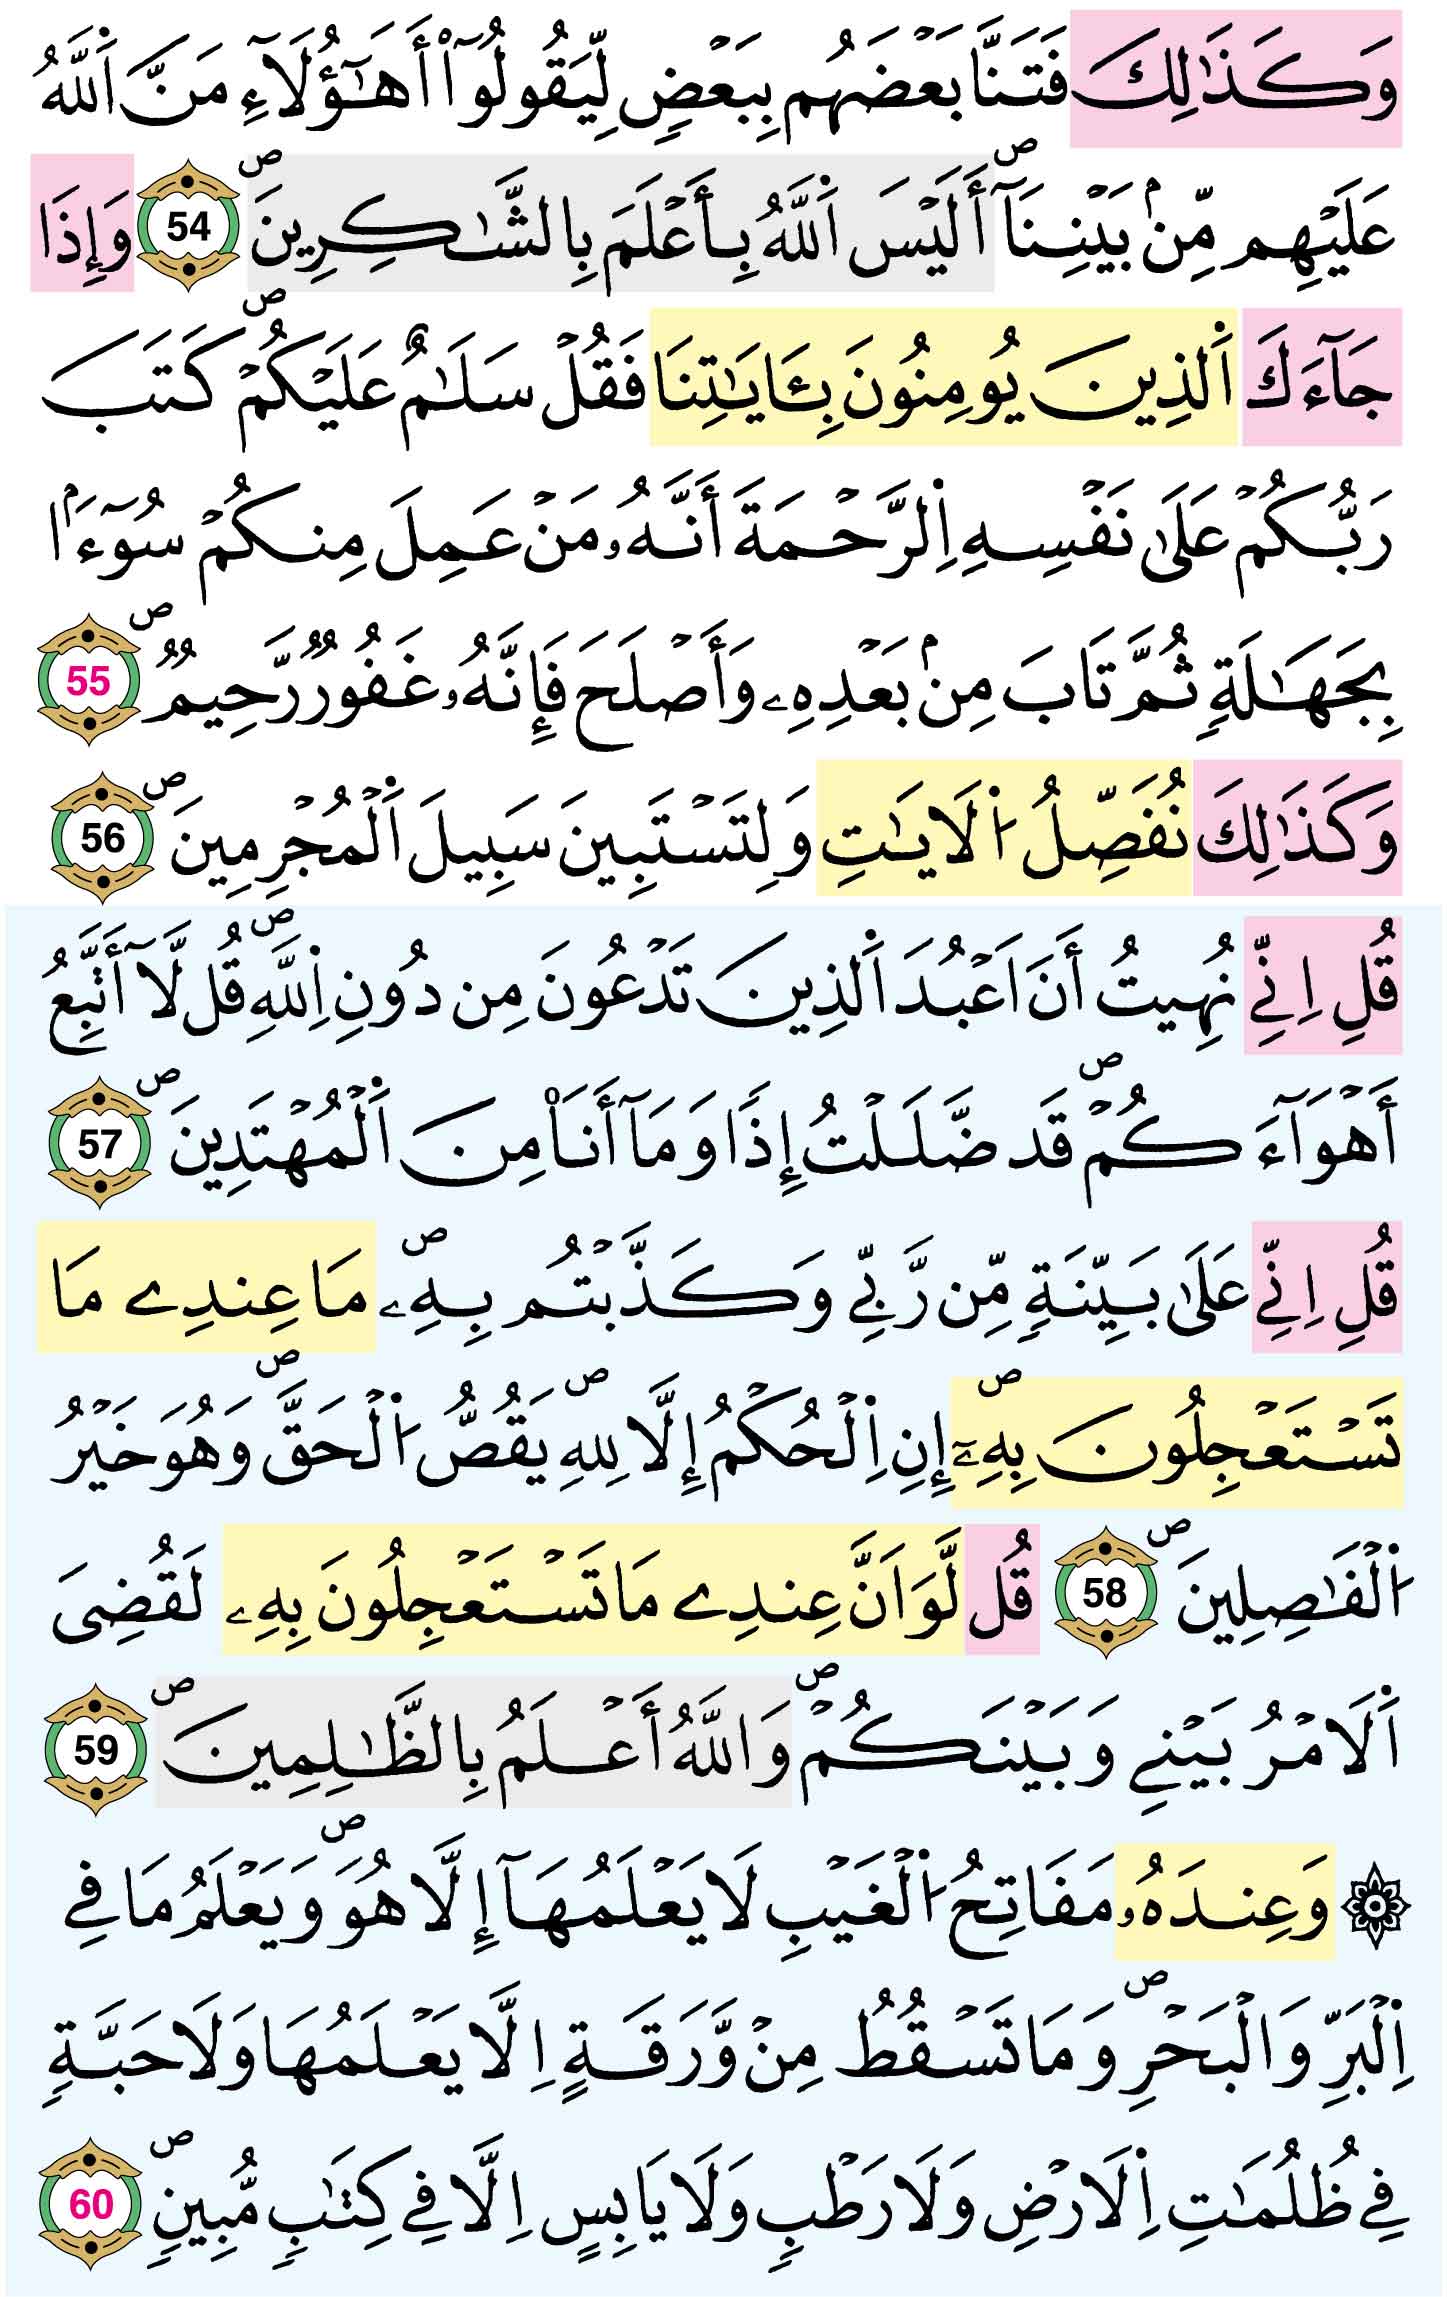 وَكَذَٰلِكَ فَتَنَّا بَعْضَهُم بِبَعْضٍ لِّيَقُولُوٓاْ أَهَٰٓؤُلَآءِ مَنَّ اَ۬للَّهُ
عَلَيْهِم مِّنۢ بَيْنِنَآۖ أَلَيْسَ اَ۬للَّهُ بِأَعْلَمَ بِالشَّٰكِرِينَۖ 54 وَإِذَا
جَآءَكَ اَ۬لذِينَ يُومِنُونَ بِـَٔايَٰتِنَا فَقُلْ سَلَٰمٌ عَلَيْكُمْۖ كَتَبَ
رَبُّكُمْ عَلَىٰ نَفْسِهِ اِ۬لرَّحْمَةَ أَنَّهُۥ مَنْ عَمِلَ مِنكُمْ سُوٓءَۢا
بِجَهَٰلَةٍ ثُمَّ تَابَ مِنۢ بَعْدِهِۦ وَأَصْلَحَ فَإِنَّهُۥ غَفُورٌ رَّحِيمٌۖ 55
وَكَذَٰلِكَ نُفَصِّلُ اُ۬لَايَٰتِ وَلِتَسْتَبِينَ سَبِيلَ اَ۬لْمُجْرِمِينَۖ 56
قُلِ اِنِّے نُهِيتُ أَنَ اَعْبُدَ اَ۬لذِينَ تَدْعُونَ مِن دُونِ اِ۬للَّهِۖ قُل لَّآ أَتَّبِعُ
أَهْوَآءَكُمْۖ قَد ضَّلَلْتُ إِذاٗ وَمَآ أَنَا۠ مِنَ اَ۬لْمُهْتَدِينَۖ 57
قُلِ اِنِّے عَلَىٰ بَيِّنَةٍ مِّن رَّبِّے وَكَذَّبْتُم بِهِۦۖ مَا عِندِے مَا
تَسْتَعْجِلُونَ بِهِۦٓۖ إِنِ اِ۬لْحُكْمُ إِلَّا لِلهِۖ يَقُصُّ اُ۬لْحَقَّۖ وَهُوَ خَيْرُ
اُ۬لْفَٰصِلِينَۖ 58 قُل لَّوَ اَنَّ عِندِے مَا تَسْتَعْجِلُونَ بِهِۦ لَقُضِيَ
اَ۬لَامْرُ بَيْنِے وَبَيْنَكُمْۖ وَاللَّهُ أَعْلَمُ بِالظَّٰلِمِينَۖ 59
۞ وَعِندَهُۥ مَفَاتِحُ اُ۬لْغَيْبِ لَا يَعْلَمُهَآ إِلَّا هُوَۖ وَيَعْلَمُ مَا فِے
اِ۬لْبَرِّ وَالْبَحْرِۖ وَمَا تَسْقُطُ مِنْ وَّرَقَةٍ اِلَّا يَعْلَمُهَا وَلَا حَبَّةٍ
فِے ظُلُمَٰتِ اِ۬لَارْضِ وَلَا رَطْبٍ وَلَا يَابِسٍ اِلَّا فِے كِتَٰبٍ مُّبِينٍۖ 60